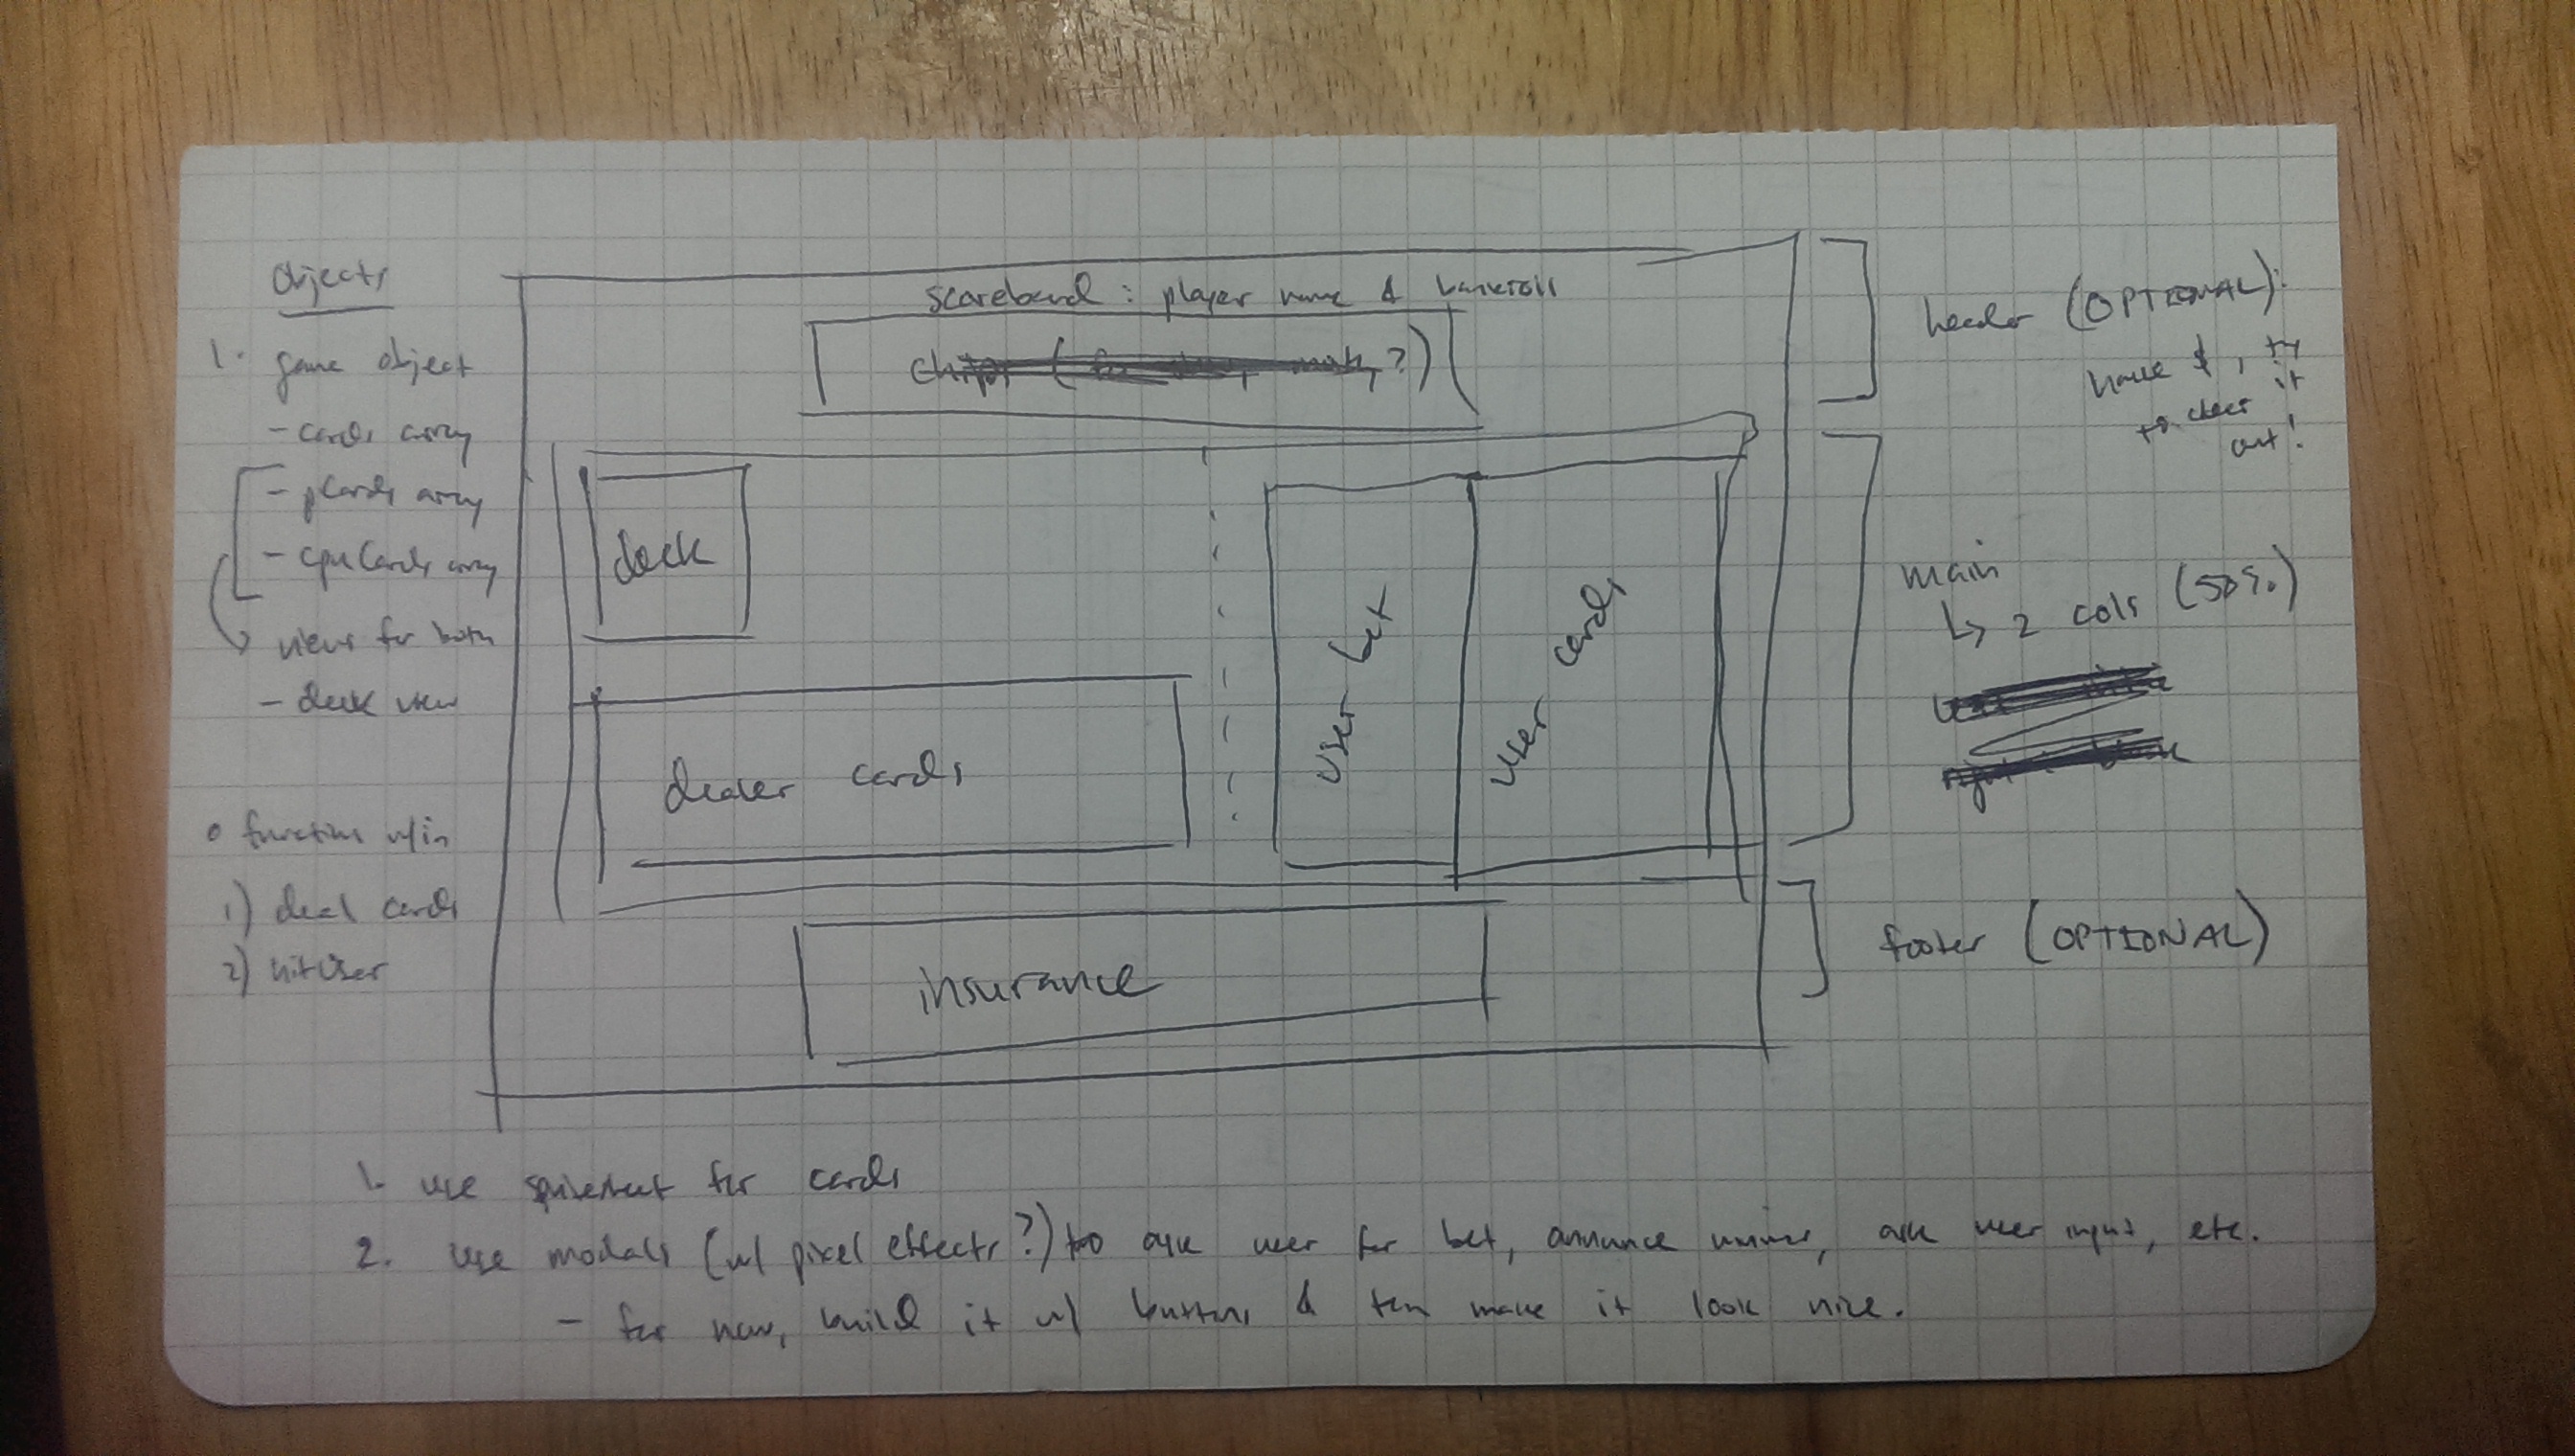 Objects
1. game object
- cards array
- pCards array
- cpuCards array
views for both
- deck view
o functions w/in
1) deal cards
2) hitUser
scoreboard : player name & bankroll
chips ( ?)
deck
dealer cards
user bet
user cards
insurance
header (OPTIONAL):
$, try
it
to clear
out!
main
↳ 2 cols (50%)
footer (OPTIONAL)
1. use spritesheet for cards
2. use modals (w/ pixel effects?) to ask user for bet, announce winner, ask user input, etc.
- for now, build it w/ buttons & then make it look nice.